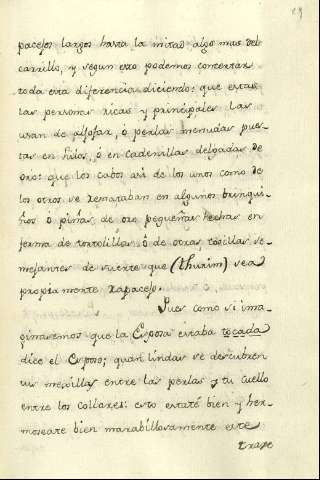 29
pacejos largos hasta la mitad algo mas del
carrillo, y segun esto podemos concertar
toda esta diferencia diciendo: que estas
las personas ricas y principales las
usan de aljofar, ó perlas menudas pues-
tas en hilos, ó en cadenillas delgadas de
oro: que los cabos asi de los unos como de
los otros se remataban en algunos brinqui-
ños ó piñas, de oro pequeñas hechas en
forma de tortolillas, ó de otras cosillas se-
mejantes de suerte que (thurim) sea
propiamente rapacejo.
Pues como si ima-
ginasemos que la Esposa estaba tocada
dice el Esposo; quan lindas se descubren
tus mexillas entre las perlas y tu cuello
entre los collares: esto estaté bien y her-
moseate bien marabillosamente este
traxe